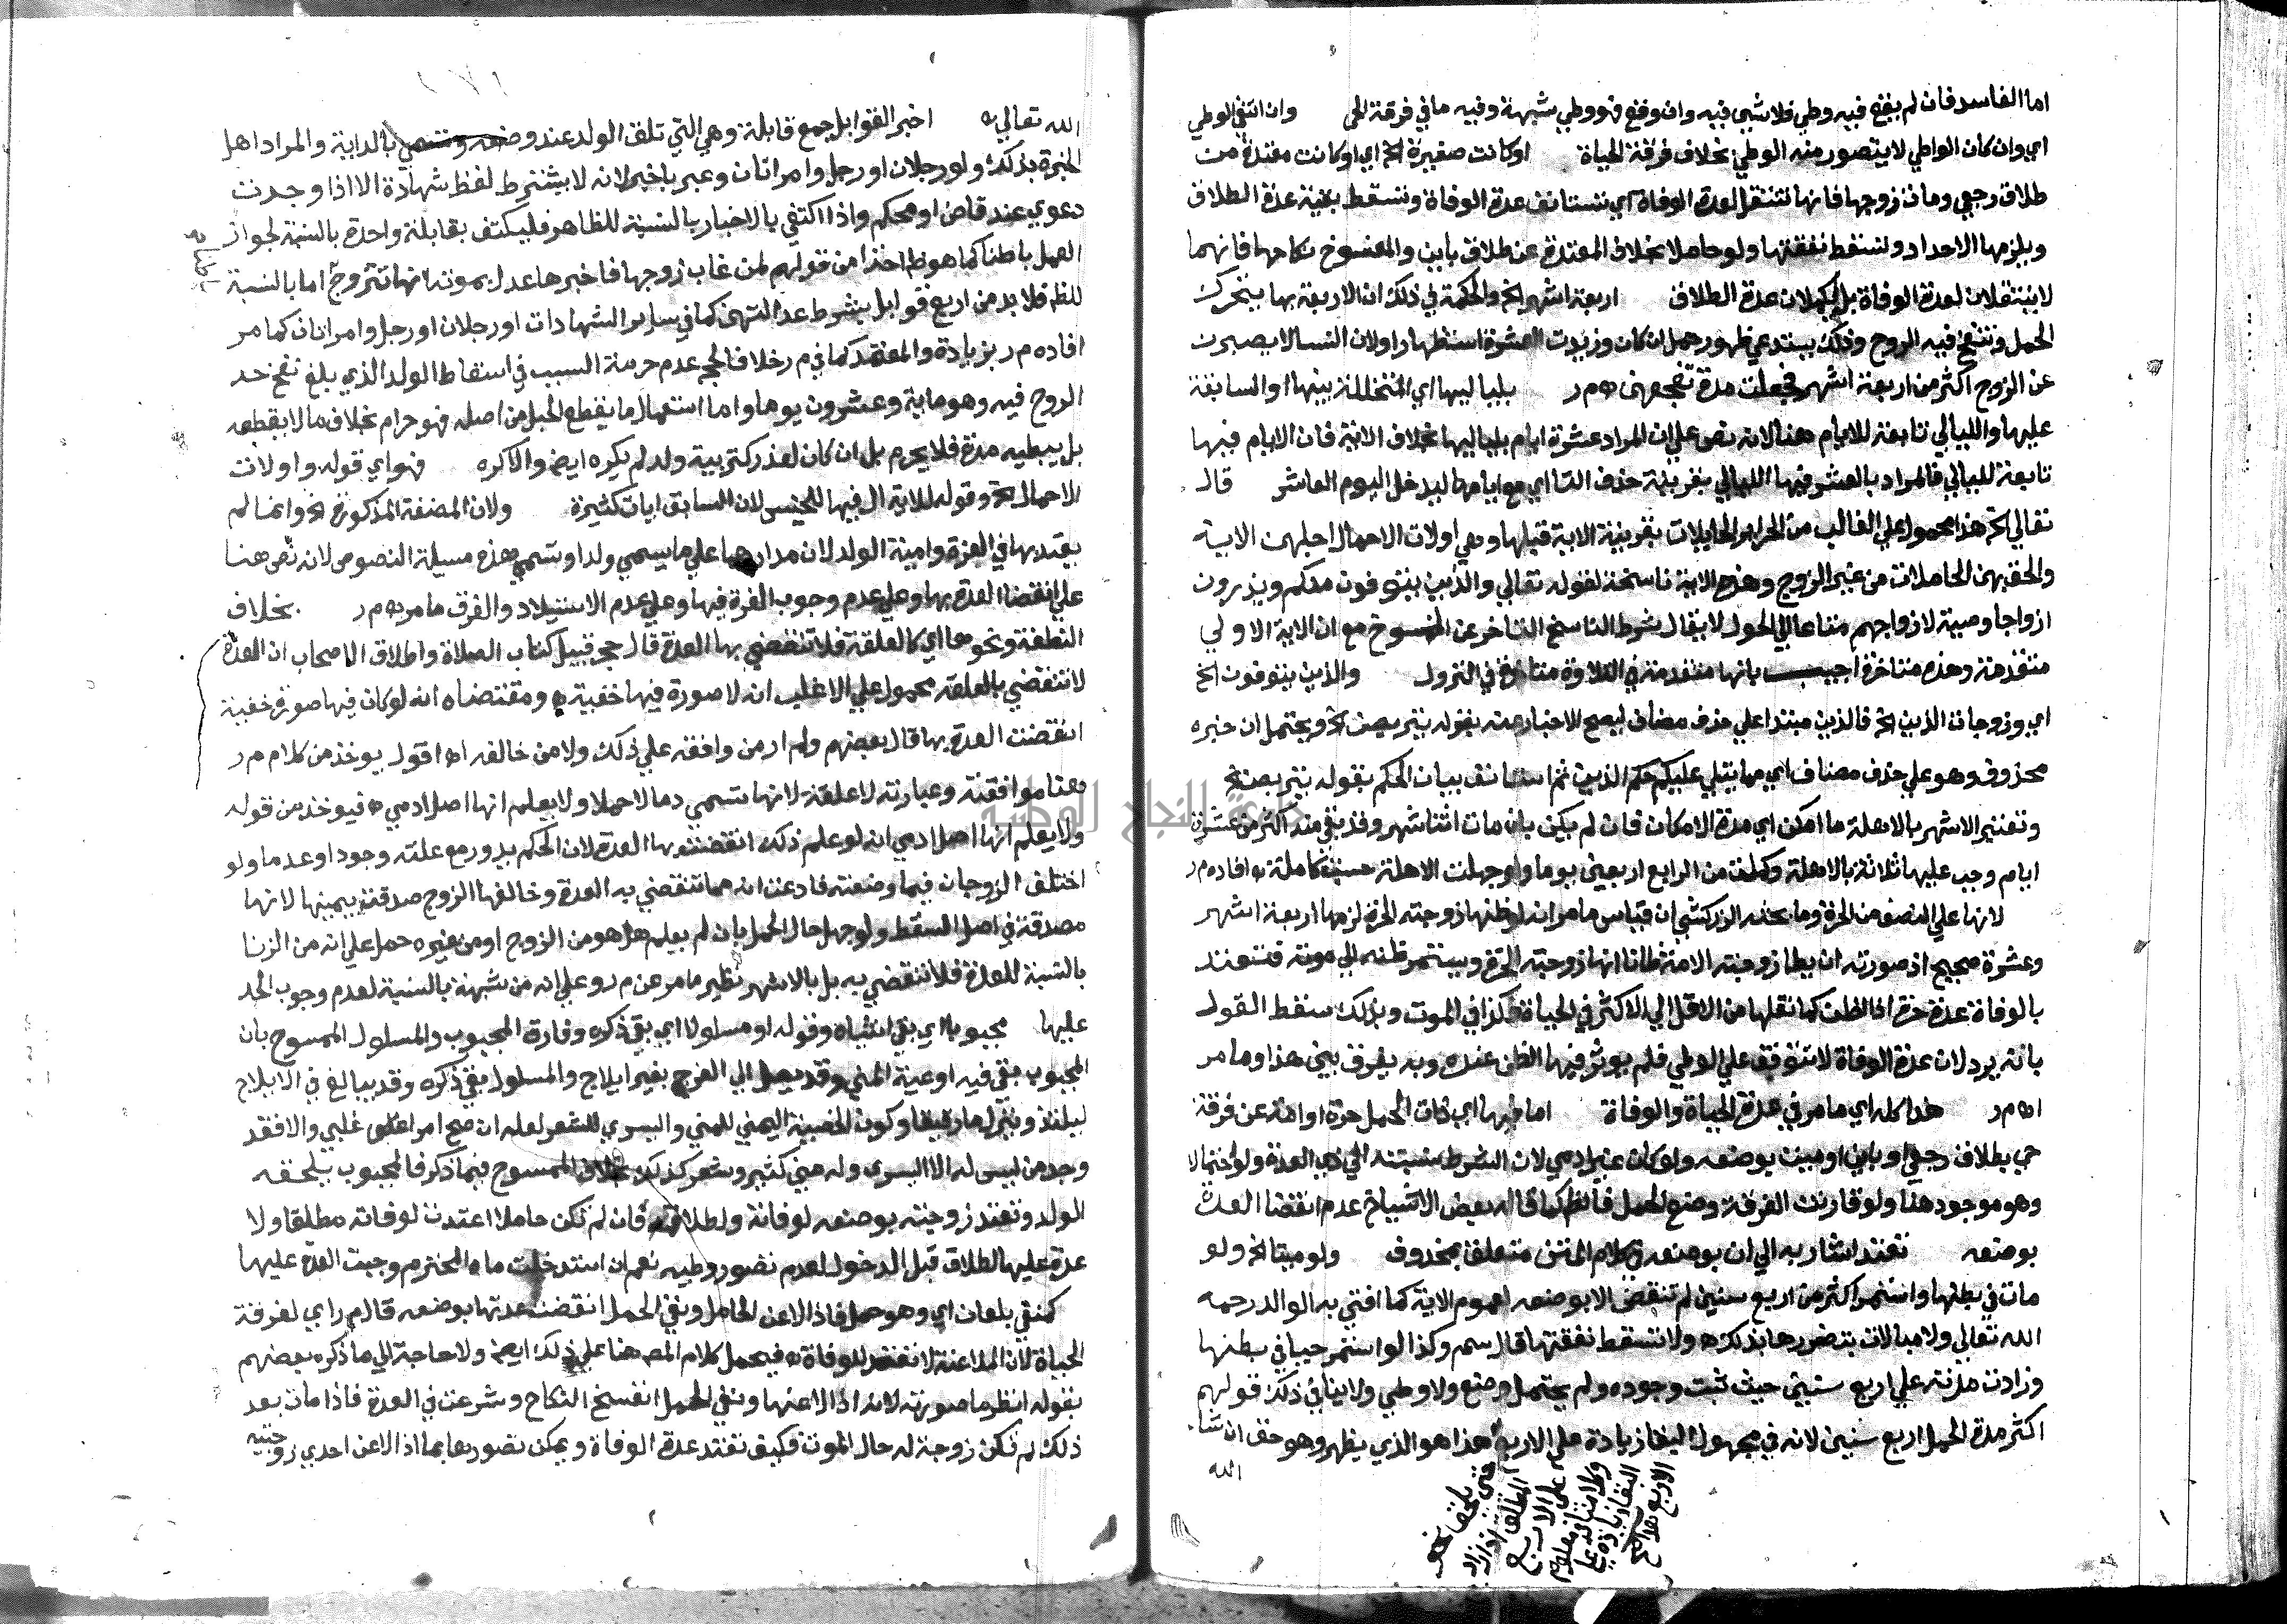 اما الفاسد فان لم يقع فيه وطي فلا شي فيه وان وقع فهو وطي شبهة وفيه ما في فرقة الحي وان انتفي الوطي
اي وان كان الواطي لا يتصور منه الوطي بخلاف فرقة الحياة اوكانت صغيرة الخ اي اوكانت معتدة من
طلاق رجعي ومات زوجها فانها تنتقل لعدة الوفاة اي تستانف عدة الوفاة وتسقط بقية عدة الطلاق
ويلزمها الاحداد وتسقط نفقتها ولو حاملا بخلاف المعتدة عن طلاق باين والمفسوخ نكاحها فانهما
لا ينتقلان لعدة الوفاة بل يكملان عدة الطلاق اربعة اشهر الخ والحكمة في ذلك ان الاربعة بها يتحرك
الحمل وتنفخ فيه الروح وذلك يستدعي ظهور حمل ان كان وزيدت العشرة استظهارا ولان النسا لا يصبرن
عن الزوج اكثر من اربعة اشهر فجعلت مدة تفجعهن اه م ر بلياليها اي المتخللة بينها او السابقة
عليها والليالي تابعة للايام هنا لانه نص علي ان المراد عشرة ايام بلياليها بخلاف الاية فان الايام فيها
تابعة لليالي فالمراد بالعشر فيها الليالي بقرينة حذف التا اي مع ايامها ليدخل اليوم العاشر قال
تعالي الخ هذا محمول علي الغالب من الحراير الحايلات بقرينة الاية قبلها وهي اولات الاحمال اجلهن الاية
والحق بهن الحاملات من غير الزوج وهذه الاية ناسخة لقوله تعالي والذين يتوفون منكم ويذرون
ازواجا وصية لازواجهم متاعا الي الحول لا يقال شرط الناسخ التاخر عن المنسوخ مع ان الاية الاولي
متقدمة وهذه متاخرة اجيب بانها متقدمة في التلاوة متاخرة في النزول والذين يتوفون الخ
اي وزوجات الذين الخ فالذين مبتدا علي حذف مضاف ليصح الاخبار عنه بقوله يتربصن الخ ويحتمل ان خبره
محذوف وهو علي حذف مضاف اي مما يتلي عليكم حكم الذين ثم استانف بيان الحكم بقوله يتربصن الخ
وتعتبر الاشهر بالاهلة ما امكن اي مدة الامكان فان لم يكن بان مات اثنا شهر وقد بقي منه اكثر من عشرة
ايام وجب عليها ثلاثة بالاهلة وكملت من الرابع اربعين يوما ولو جهلت الاهلة حسبت كاملة اه افاده م ر
لانها علي النصف من الحرة وما بحثه الزركشي ان قياس ما مر انه لو ظنها زوجته الحرة لزمها اربعة اشهر
وعشرة صحيح اذ صورته ان يطا زوجته الامة ظانا انها زوجته الحرة ويستمر ظنه الي موته فتعتد
بالوفاة عدة حرة اذ الظن كما نقلها من الاقل الي الاكثر في الحياة فكذا في الموت وبذلك سقط القول
بانه يرد لان عدة الوفاة لا تتوقف علي الوطي فلم يوثر فيها الظن عنده وبه يفرق بين هذا وما مر
اه م ر هذا كله اي ما مر في عدة الحياة والوفاة اما فيها اي ذات الحمل حرة او امة عن فرقة
حي بطلاق رجعي او باين او ميت بوضعه ولو كان غير ادمي لان الشرط نسبته الي ذي العدة ولو احتمالا
وهو موجود هنا ولو قارنت الفرقة وضع الحمل فالظ كما قاله بعض الاشياخ عدم انقضا العدة
بوضعه تعتد اشار به الي ان بوضعه في كلام المتن متعلق بمحذوف ولو ميتا الخ ولو
مات في بطنها واستمر اكثر من اربع سنين لم تنقض الا بوضعه لعموم الاية كما افتي به الوالد رحمه
الله تعالي ولا مبالات بتضررها بذلك اه ولا تسقط نفقتها قال سم وكذا لو استمر حيا في بطنها
وزادت مدته علي اربع سنين حيث ثبت وجوده ولم يحتمل وضع ولا وطي ولا ينافي ذلك قولهم
اكثر مدة الحمل اربع سنين لانه في مجهول البقا زيادة علي الاربع هذا هو الذي يظهر وهو حق ان شاء
الله
الله تعالي اه اخبر القوابل جمع قابلة وهي التي تلقف الولد عند وضعه وتسمي بالداية والمراد اهل
الخبرة بذلك ولو رجلان او رجل وامراتان وعبر باخبر لانه لا يشترط لفظ شهادة الا اذا وجدت
دعوي عند قاض او محكم واذا اكتفي بالاخبار بالنسبة للظاهر فليكتف بقابلة واحدة بالنسبة لجواز
العمل باطنا كما هو ظ اخذا من قولهم لمن غاب زوجها فاخبرها عدل بموته انها تتزوج اما بالنسبة
للظ فلا بد من اربع قوابل بشرط عدالتهن كما في ساير الشهادات او رجلان او رجل وامراتان كما مر
افاده م ر بزيادة والمعتمد كما في م ر خلافا لحج عدم حرمة السبب في اسقاط الولد الذي بلغ نفخ حد
الروح فيه وهو ماية وعشرون يوما واما استعمال ما يقطع الحبل من اصله فهو حرام بخلاف ما لا يقطعه
بل يبطيه مدة فلا يحرم بل ان كان لعذر كتربية ولد لم يكره ايض والا كره فهو اي قوله واولات
الاحمال الخ وقوله للاية ال فيها للجنس لان السابق ايات كثيرة ولان المضغة المذكورة الخ وانما لم
يعتد بها في الغرة وامية الولد لان مدارهما علي ما يسمي ولدا وتسمي هذه مسيلة النصوص لانه نص هنا
علي انقضا العدة بها وعلي عدم وجوب الغرة فيها وعلي عدم الاستيلاد والفرق ما مر اه م ر بخلاف
النطفة ونحوها اي كالعلقة فلا تنقضي بها العدة قال حج قبيل كتاب الصلاة واطلاق الاصحاب ان العدة
لا تنقضي بالعلقة محمول علي الاغلب ان لا صورة فيها خفية اه ومقتضاه انه لو كان فيها صورة خفية
انقضت العدة بها قال بعضهم ولم ار من وافقه علي ذلك ولا من خالفه اه اقول يوخذ من كلام م ر
هنا موافقته وعبارته لا علقة لانها تسمي دما لا حملا ولا يعلم انها اصل ادمي اه فيوخذ من قوله
ولا يعلم انها اصل ادمي انه لو علم ذلك انقضت بها العدة لان الحكم يدور مع علته وجودا وعدما ولو
اختلف الزوجان فيما وضعته فادعت انه مما تنقضي به العدة وخالفها الزوج صدقت بيمينها لانها
مصدقة في اصل السقط ولو جهل حال الحمل بان لم يعلم هل هو من الزوج او من غيره حمل علي انه من الزنا
بالنسبة للعدة فلا تنقضي به بل بالاشهر نظير ما مر عن م ر وعلي انه من شبهة بالنسبة لعدم وجوب الحد
عليها مجبوبا اي بقي انثياه وقوله او مسلولا اي بقي ذكره وفارق المجبوب والمسلول الممسوح بان
المجبوب بقي فيه اوعية المني وقد يصل الي الفرج بغير ايلاج والمسلول بقي ذكره وقد يبالغ في الايلاج
ليلتذ وينزل ما رقيقا وكون الخصية اليمني للمني واليسري للشعر لعله ان صح امر اغلبي والا فقد
وجد من ليس له الا اليسري وله مني كثير وشعر كذلك بخلاف الممسوح فيما ذكر فالمجبوب يلحقه
الولد وتعتد زوجته بوضعه لوفاته ولطلاقه فان لم تكن حاملا اعتدت لوفاته مطلقا ولا
عدة عليها لطلاق قبل الدخول لعدم تصور وطيه نعم ان استدخلت ماه المحترم وجبت العدة عليها
كمنفي بلعان اي وهو حمل فاذا لاعن الحامل ونفي الحمل انقضت عدتها بوضعه قال م ر اي لفرقة
الحياة لان الملاعنة لا تعتد للوفاة اه فيحمل كلام المص هنا علي ذلك ايض ولا حاجة الي ما ذكره بعضهم
بقوله انظر ما صورته لانه اذا لاعنها ونفي الحمل انفسخ النكاح وشرعت في العدة فاذا مات بعد
ذلك لم تكن زوجة له حال الموت فكيف تعتد عدة الوفاة ويمكن تصويرها بما اذا لاعن احدي زوجتيه